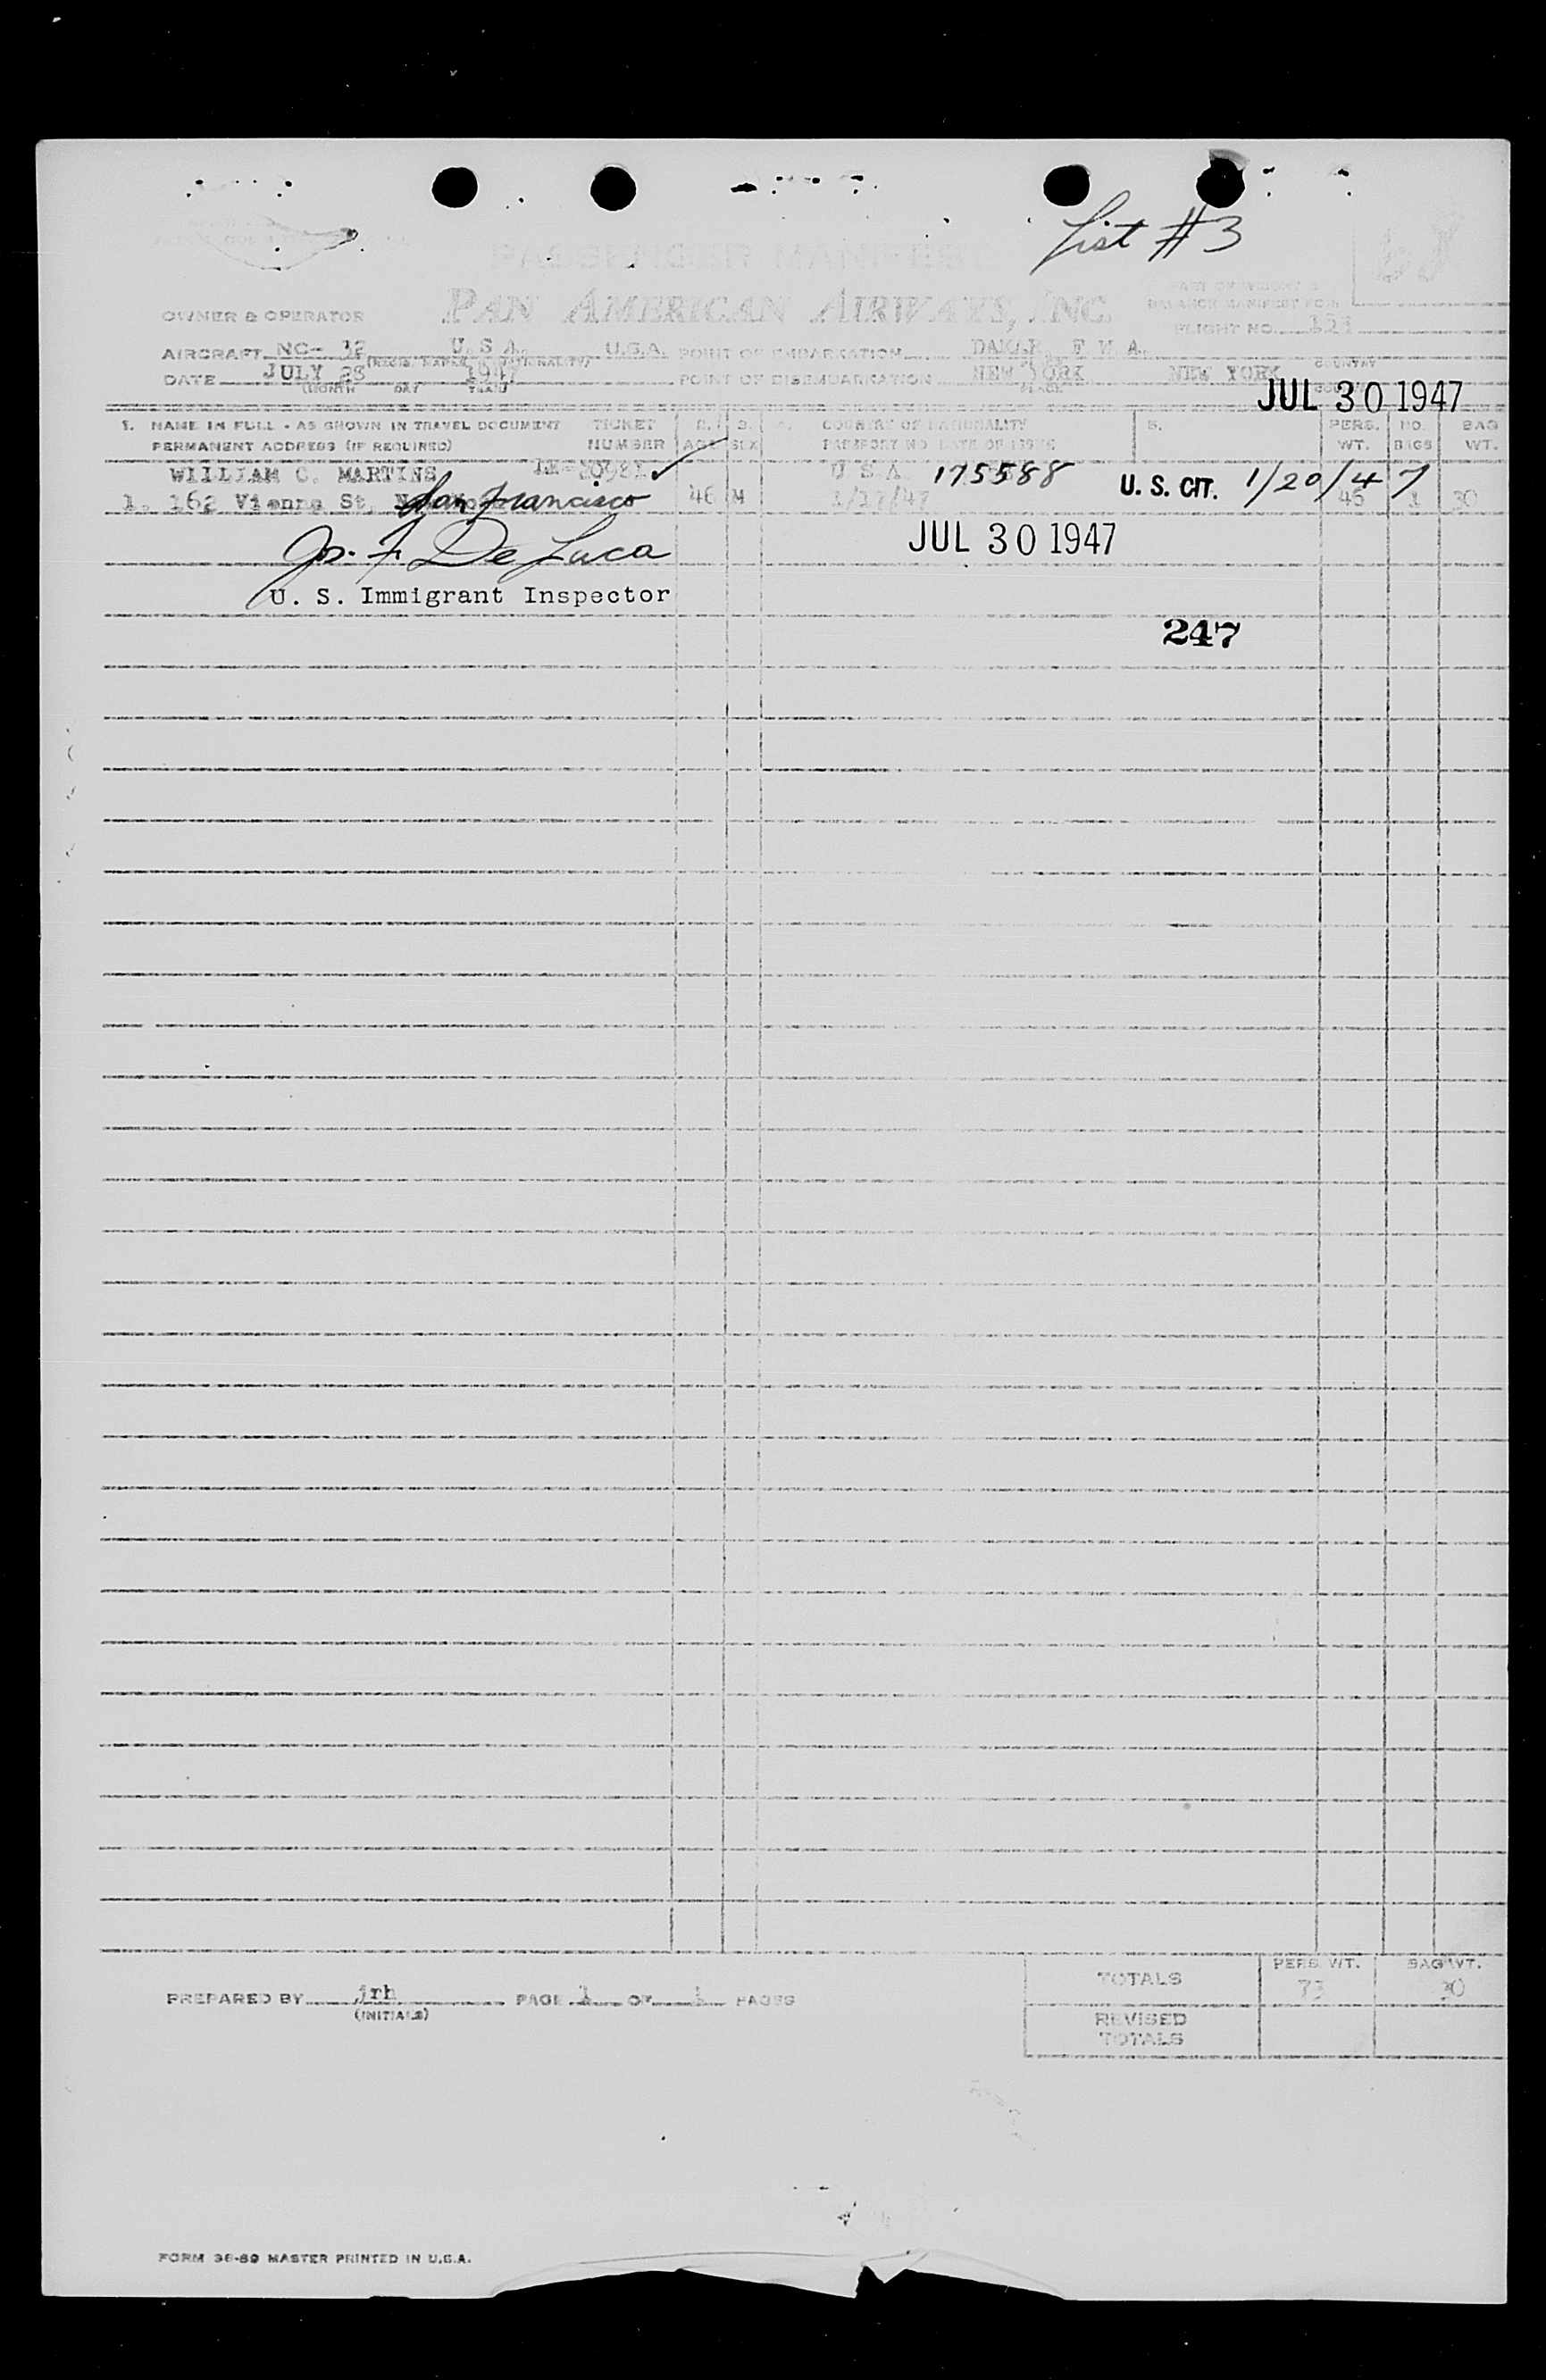 List #3
PASSENGER MANIFEST
PAN AMERICAN AIRWAYS, INC.
OWNER & OPERATOR
FLIGHT NO.
AIRCRAFT NC- U.S.A. U.S.A. POINT OF EMBARKATION DAKAR, F W A
COUNTRY
DATE JULY 28 1947 POINT OF DISEMBARKATION NEW YORK NEW YORK
(MONTH DAY YEAR) PLACE
JUL 30 1947
1. NAME IN FULL - AS SHOWN IN TRAVEL DOCUMENT TICKET 2. 3. 4. COUNTRY OF NATIONALITY 5. PERS. NO. BAG
PERMANENT ADDRESS (IF REQUIRED) NUMBER AGE SEX PASSPORT NO DATE OF ISSUE WT. BAGS WT.
WILLIAM C. MARTINS U S A 175588 U. S. CIT. 1/20/47
1. 162 Vienna St, San Francisco 46 M 1/17/47 1 30
Jos. F. De Luca JUL 30 1947
U. S. Immigrant Inspector
247
PERS. WT. BAG WT.
TOTALS 73 30
PREPARED BY jrh PAGE 1 OF 1 PAGES
(INITIALS)
REVISED
TOTALS
FORM 36-89 MASTER PRINTED IN U.S.A.